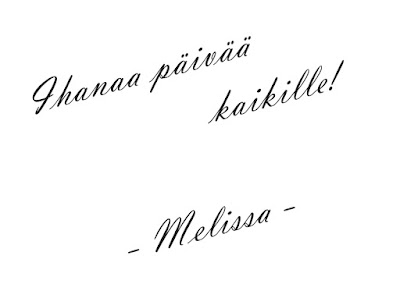 Ihanaa päivää
kaikille!
- Melissa -